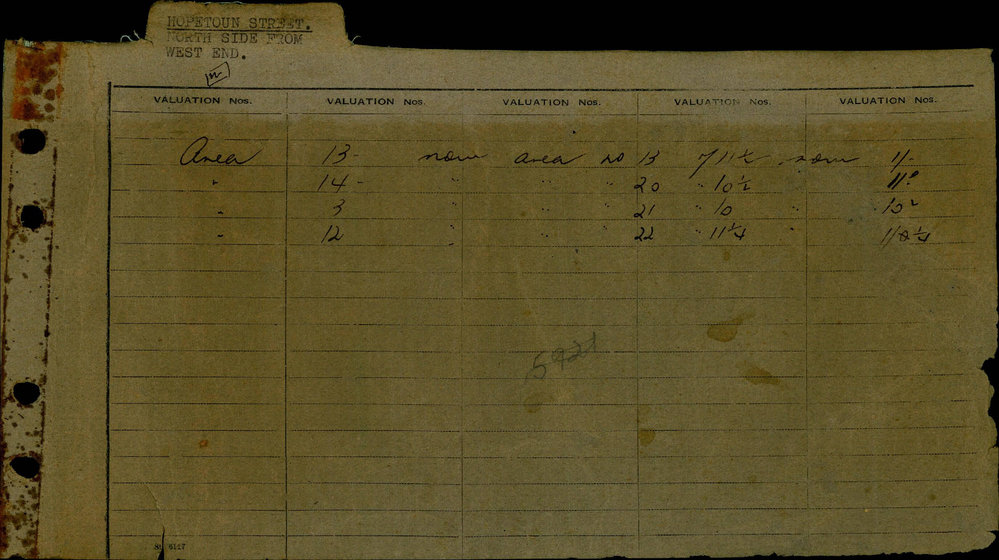 HOPETOUN STREET.
NORTH SIDE FROM
WEST END.
VALUATION Nos. VALUATION Nos. VALUATION Nos. VALUATION Nos. VALUATION Nos.
Area 13 - now area no 13 7/11½ now 1/-
" 14 - " " " 20 " 10½ 11
" 3 " " " 21 " 10 " 10
" 12 " " " 22 " 11¼ "
5921
6117